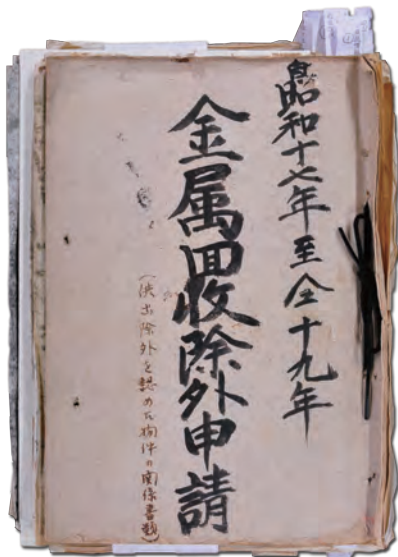 自昭和十七年至仝十九年
金属回收除外申請
(供出除外を認めた物件の関係書類)